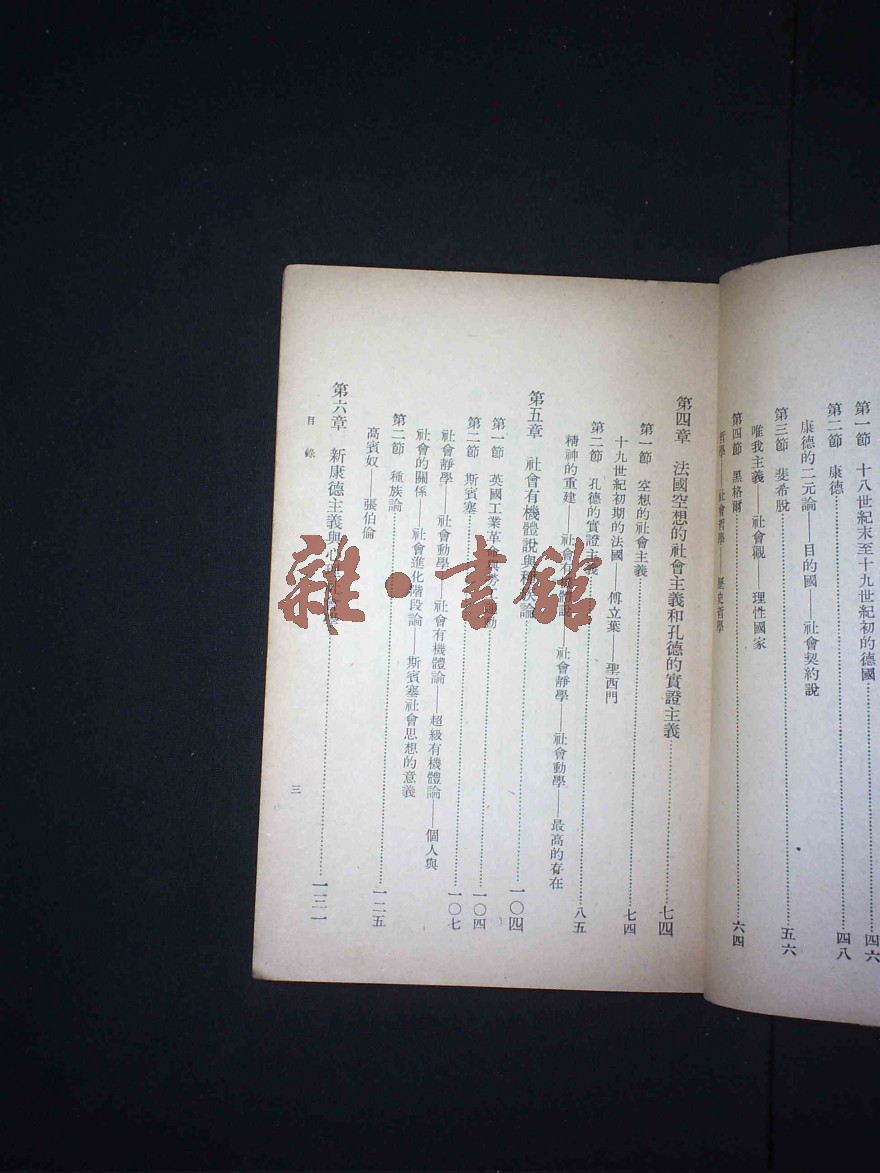 第一節 十八世紀末至十九世紀初的德國 四六
第二節 康德 四八
康德的二元論——目的國——社會契約說
第三節 斐希脫 五六
唯我主義——社會觀——理性國家
第四節 黑格爾 六四
哲學——社會哲學——歷史哲學
第四章 法國空想的社會主義和孔德的實證主義 七四
第一節 空想的社會主義 七四
十九世紀初期的法國——傅立葉——聖西門
第二節 孔德的實證主義 八五
精神的重建——社會有機體說——社會靜學——社會動學——最高的存在
第五章 社會有機體說與種族論 一〇四
第一節 英國工業革命與勞工運動 一〇四
第二節 斯賓塞 一〇七
社會靜學——社會動學——社會有機體論——超級有機體論——個人與
社會的關係——社會進化階段論——斯賓塞社會思想的意義
第二節 種族論 一二五
高賓奴——張伯倫
第六章 新康德主義與心理 一三一
目錄
三
雜·書館